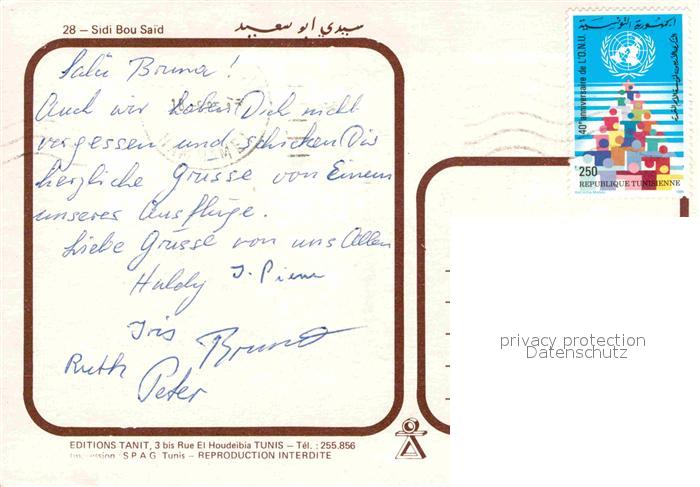 28 – Sidi Bou Saïd
سيدي أبو سعيد
Salü Bruna!
Auch wir haben Dich nicht
vergessen und schicken Dir
herzliche Grüsse von Einem
unseres Ausflüge.
Liebe Grüsse von uns Allen
Huldy J. Pierre
Iris Bruno
Ruth Peter
الجمهورية التونسية
40e anniversaire de L'O.N.U.
250
REPUBLIQUE TUNISIENNE
privacy protection
Datenschutz
EDITIONS TANIT, 3 bis Rue El Houdeibia TUNIS – Tél. : 255.856
S.P.A.G. Tunis – REPRODUCTION INTERDITE